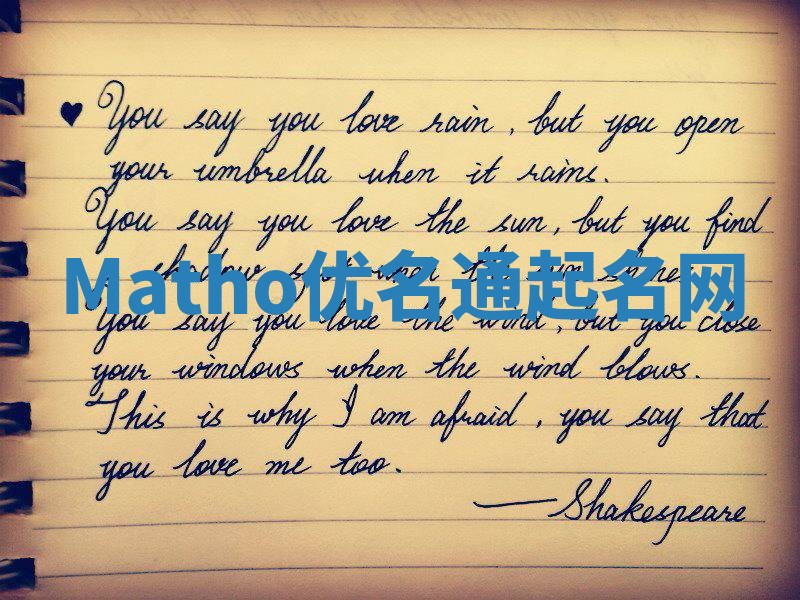 ♥ You say you love rain, but you open
your umbrella when it rains.
You say you love the sun, but you find
shadow spot when the sun shines
Matho优名通起名网
You say you love the wind, but you close
your windows when the wind blows.
This is why I am afraid, you say that
you love me too.
—Shakespeare